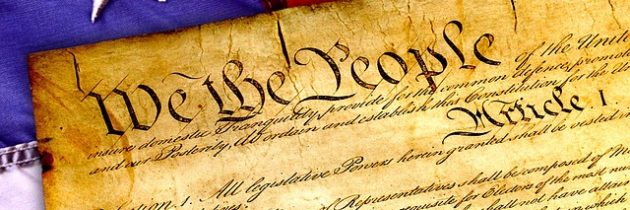 We the People of the United
insure domestic Tranquility, provide for the common defence, promote
and our Posterity, do ordain and establish this Constitution for the Un
Article I.
ction 1. All legislative Powers herein granted shall be vested in
Representatives.
Representatives shall be composed of M
requisite for Electors of the most nu
shall not have attain
when